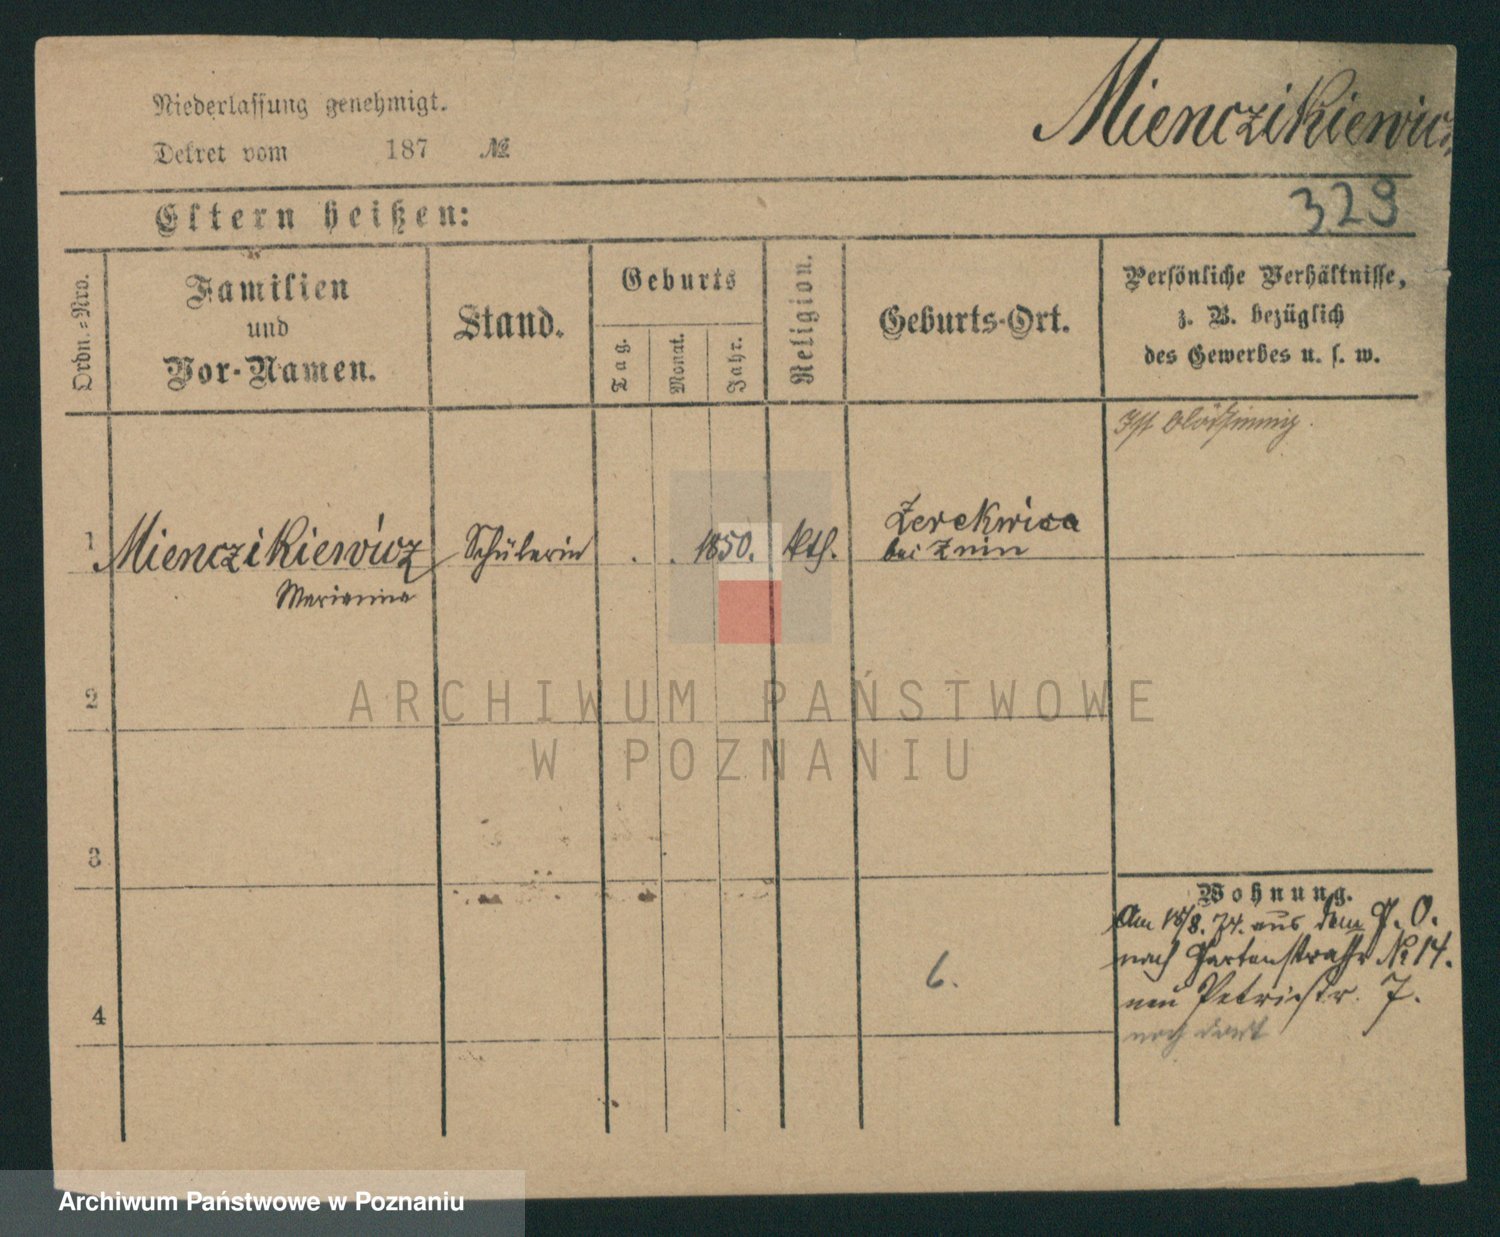 Niederlassung genehmigt.
Mienczikiewicz
Dekret vom 187 №
329
Eltern heißen:
Ordn.-Nro.
Familien
und
Vor-Namen.
Stand.
Geburts
Tag.
Monat.
Jahr.
Religion.
Geburts-Ort.
Persönliche Verhältnisse,
z. B. bezüglich
des Gewerbes u. s. w.
Ist blödsinnig.
1 Mienczikiewicz Schülerin . . 1850. kth. Zerekwica
bei Znin
Marianna
2
ARCHIWUM PAŃSTWOWE
W POZNANIU
3
Wohnung.
Am 18/8. 74. aus dem P. O.
nach Gartenstraße № 14.
neu Petristr. 7.
noch dort
6.
4
Archiwum Państwowe w Poznaniu